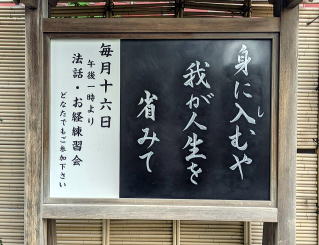 身に入むや
し
我が人生を
省みて
毎月十六日
午後一時より
法話・お経練習会
どなたでもご参加下さい